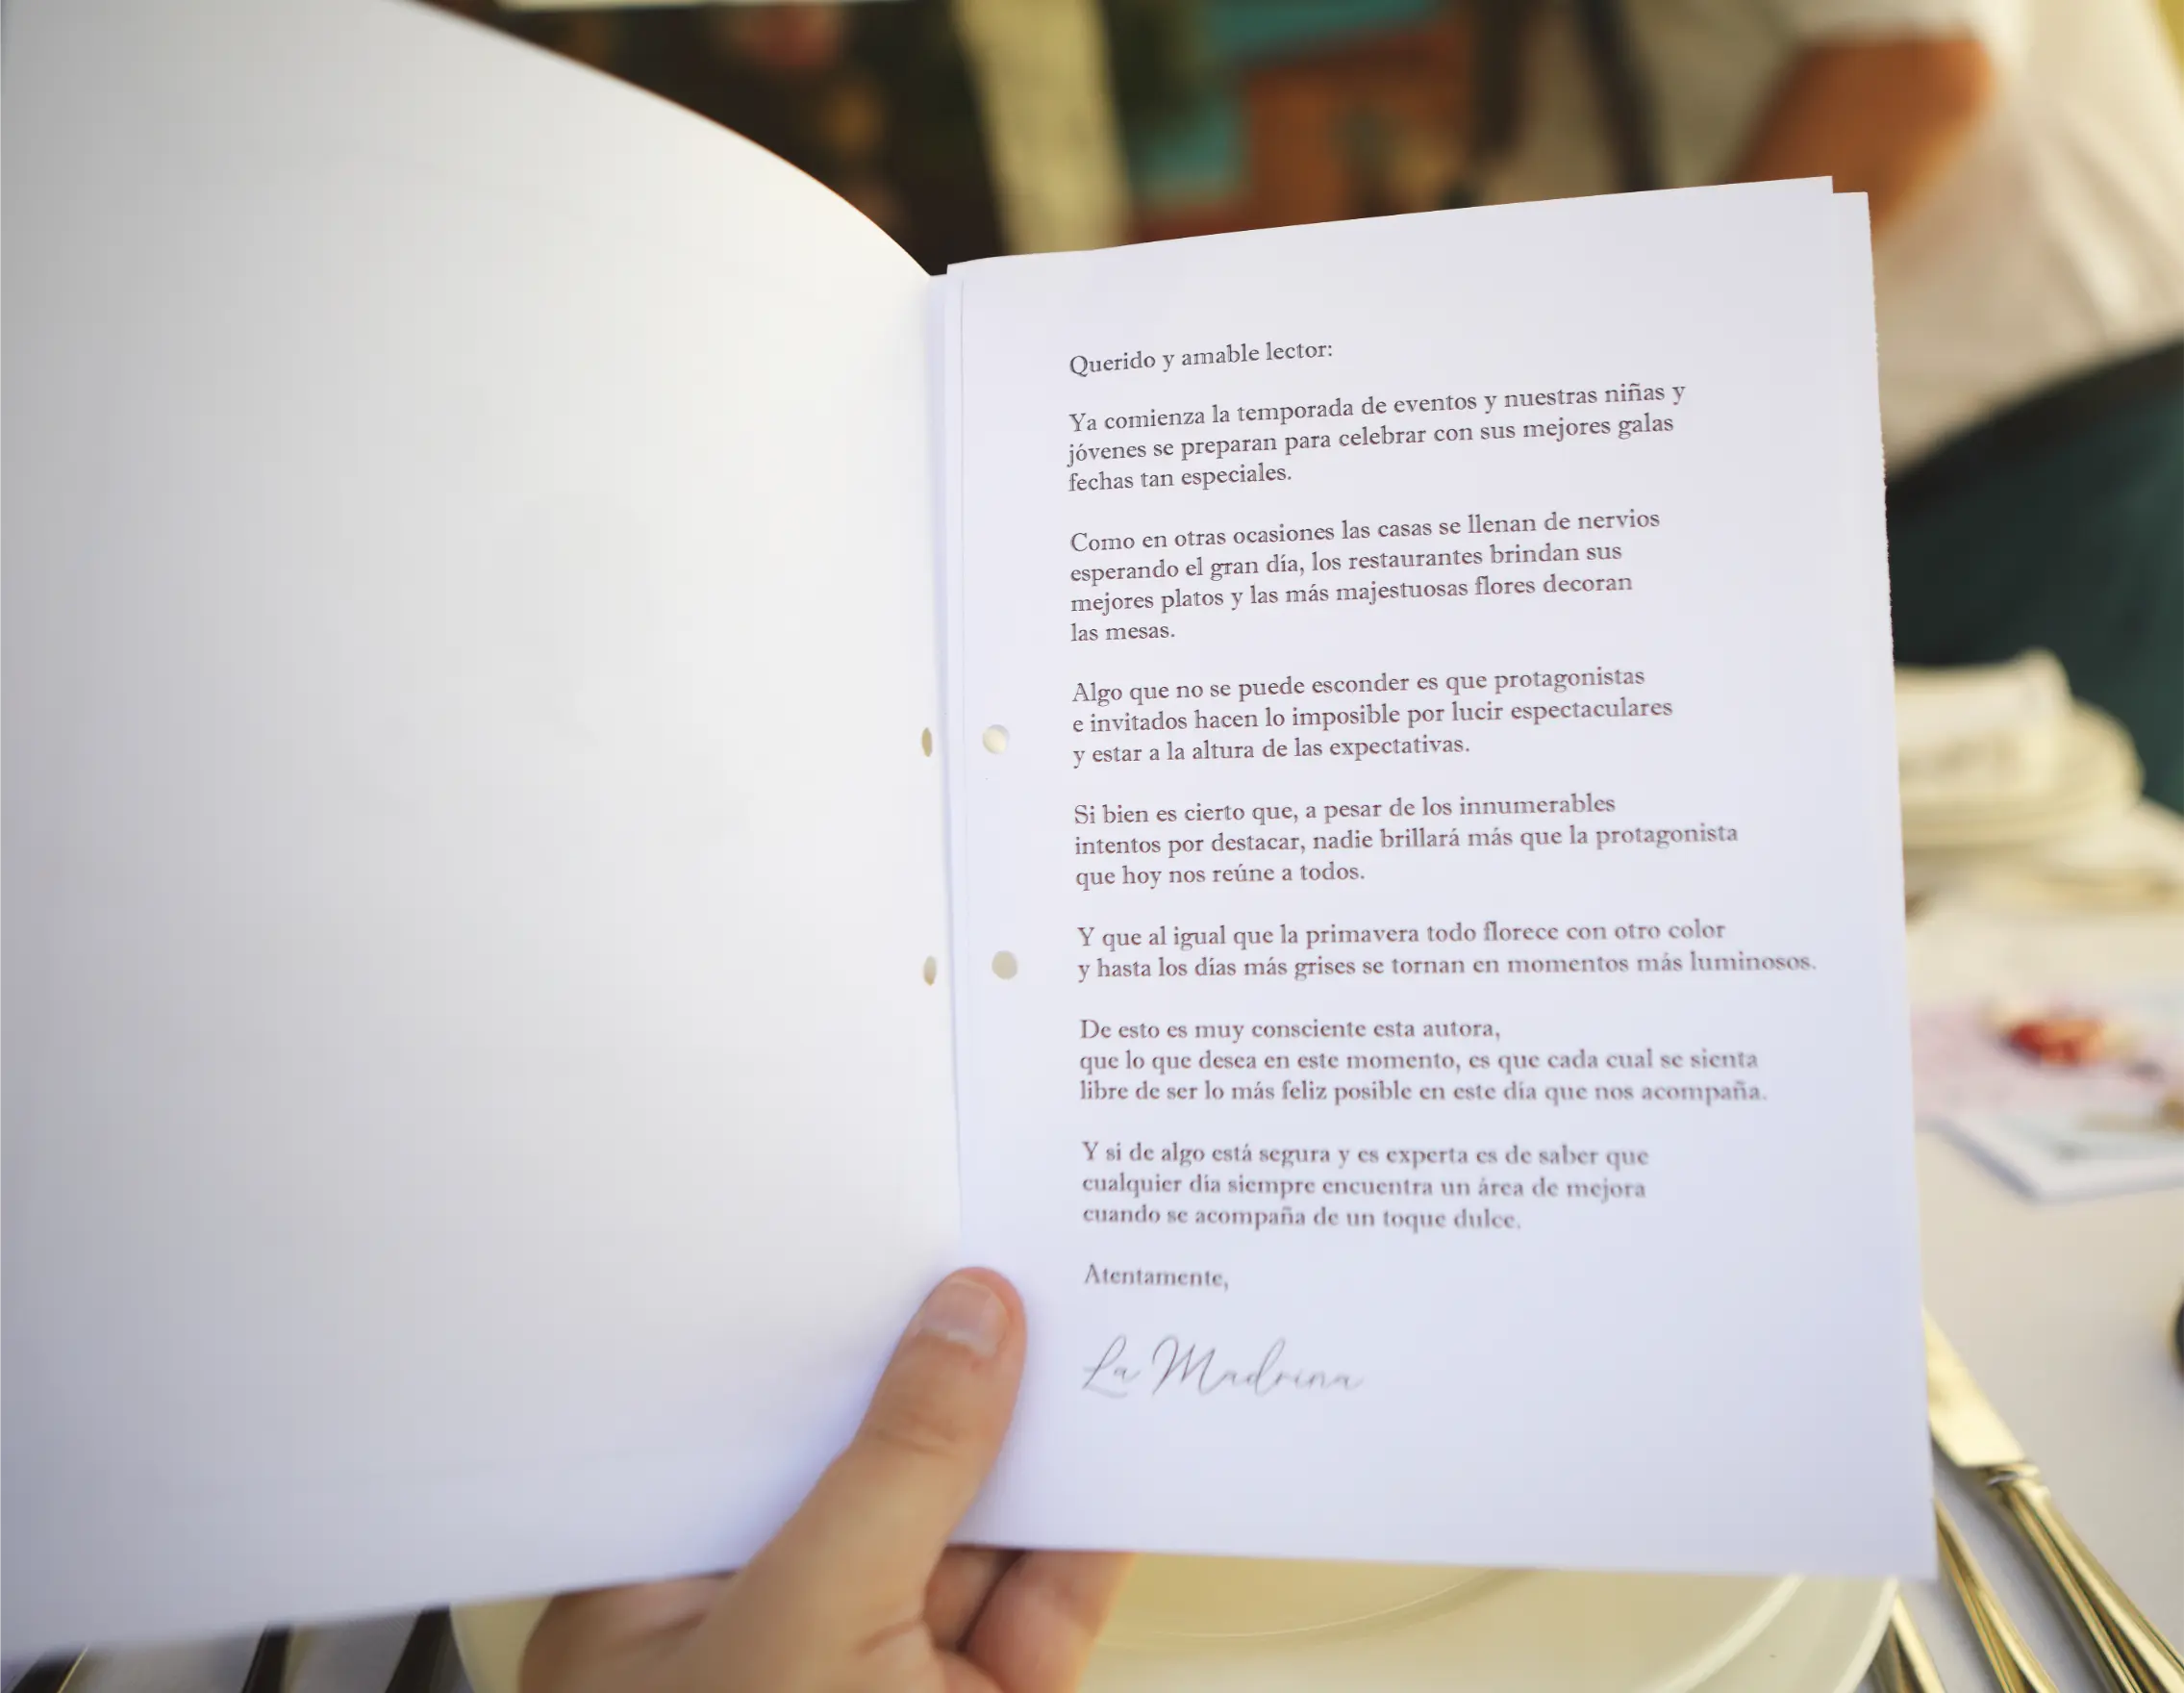 Querido y amable lector:
Ya comienza la temporada de eventos y nuestras niñas y
jóvenes se preparan para celebrar con sus mejores galas
fechas tan especiales.
Como en otras ocasiones las casas se llenan de nervios
esperando el gran día, los restaurantes brindan sus
mejores platos y las más majestuosas flores decoran
las mesas.
Algo que no se puede esconder es que protagonistas
e invitados hacen lo imposible por lucir espectaculares
y estar a la altura de las expectativas.
Si bien es cierto que, a pesar de los innumerables
intentos por destacar, nadie brillará más que la protagonista
que hoy nos reúne a todos.
Y que al igual que la primavera todo florece con otro color
y hasta los días más grises se tornan en momentos más luminosos.
De esto es muy consciente esta autora,
que lo que desea en este momento, es que cada cual se sienta
libre de ser lo más feliz posible en este día que nos acompaña.
Y si de algo está segura y es experta es de saber que
cualquier día siempre encuentra un área de mejora
cuando se acompaña de un toque dulce.
Atentamente,
La Madrina